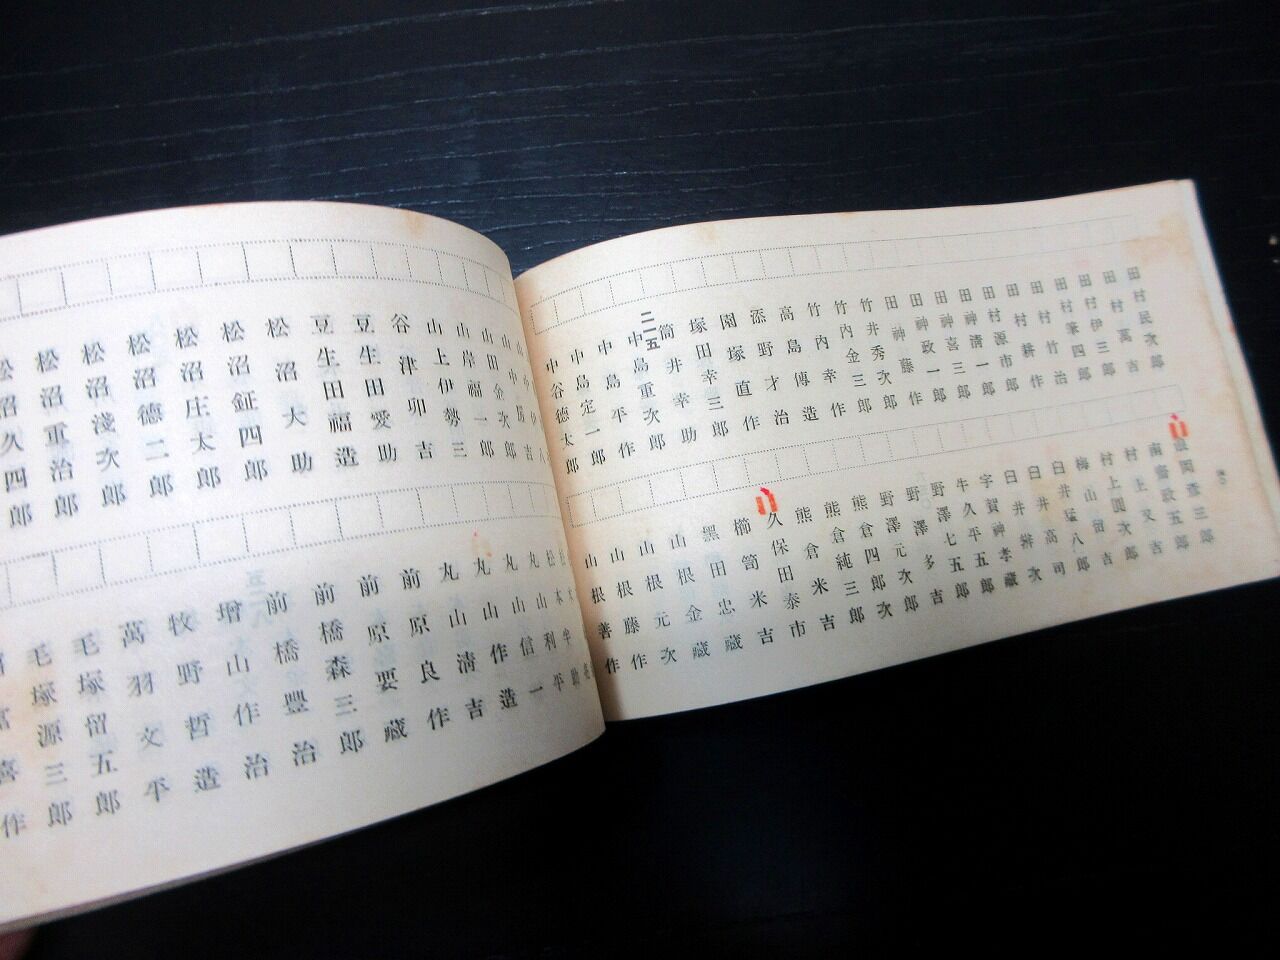 田村民次郎
田村萬吉
田村伊三郎
田村筆四郎
田村竹治
田村耕作
田村源市郎
田神清一郎
田神喜三郎
田神政一郎
田神藤作
竹井秀次郎
竹内金三郎
竹内幸作
高島傳造
高野才治
添塚直作
園田幸三郎
塚井幸助
筒
二一五
中島重次郎
中島平作
中島定一郎
中谷德太郎
南雲政五郎
村上又吉
村上圓次郎
梅山留吉
臼井猛八郎
臼井高司
臼井辨次
宇賀神孝藏
牛久平五郎
野澤七五郎
野澤多吉
野澤元次郎
熊倉四郎次
熊倉純三郎
熊倉米吉
久保田泰市
櫛笥米吉
黑田忠藏
山根金藏
山根元次
山根藤作
山根善作
山岸福三
山上伊勢吉
谷津卯助
豆生田愛助
豆生田福造
松沼大助
松沼鉦四郎
松沼庄太郎
松沼德二郎
松沼淺次郎
松沼重治郎
松沼久四郎
丸山信一
丸山作造
丸山清吉
前原良作
前原要藏
前橋森三郎
前橋豐治
增山作治
牧野哲造
萬羽文平
毛塚留五郎
毛塚源三郎